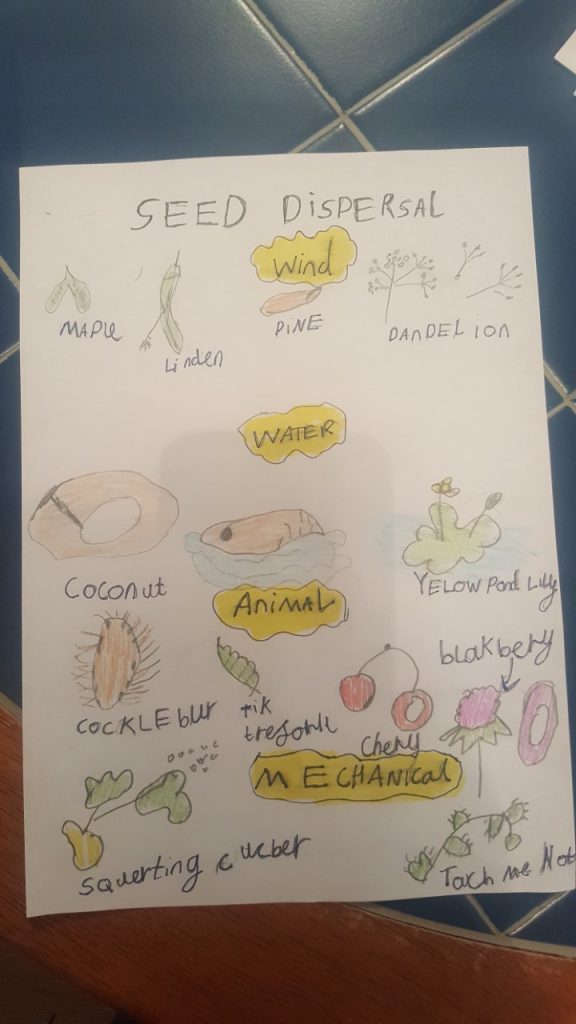 SEED DISPERSAL
Wind
MAPLE
Linden
PINE
DANDELION
WATER
Coconut
YELOW Pond Lily
AniMAL
COCKLEbUR
tik
trefohl
Chery
blakbery
MECHANICaL
Squerting cucber
Toch me Not